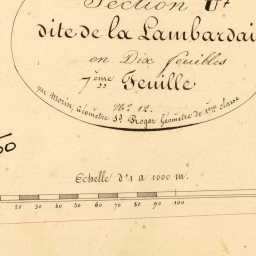 Section
dite de la Lambardai
en Dix feuilles
7ème Feuille
par Morin, Géomètre
Mr. 12.
Roger Géomètre de 1ère classe
Echelle d'1 à 1000 m.
20 30 40 50 60 70 80 90 100